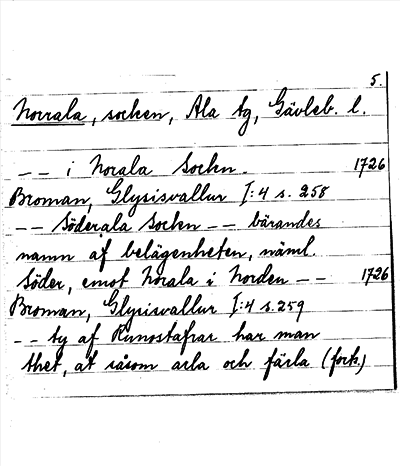 5.
Norrala, socken, Ala tg, Gävleb. l.
-- i Norala Sockn. 1726
Broman, Glysisvallur I:4 s. 258
-- Söderala Sockn -- bärandes
namn af belägenheten, näml.
Söder, emot Norala i Norden -- 1726
Broman, Glysisvallur I:4 s. 259
-- ty af Runostafrar har man
thet, at såsom arla och färla (fork.)